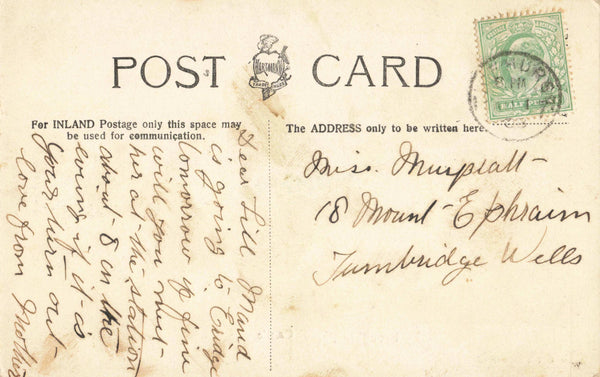 POST CARD
HARTMANN
TRADE MARK
For INLAND Postage only this space may
be used for communication.
The ADDRESS only to be written here.
HALF PENNY
Dear Lill Maud
is going to Eridge
tomorrow if fine
will you meet
her at the station
about 8 in the
evening if it is
your turn out
love from Mother
Miss. Muspratt
18 Mount Ephraim
Tunbridge Wells